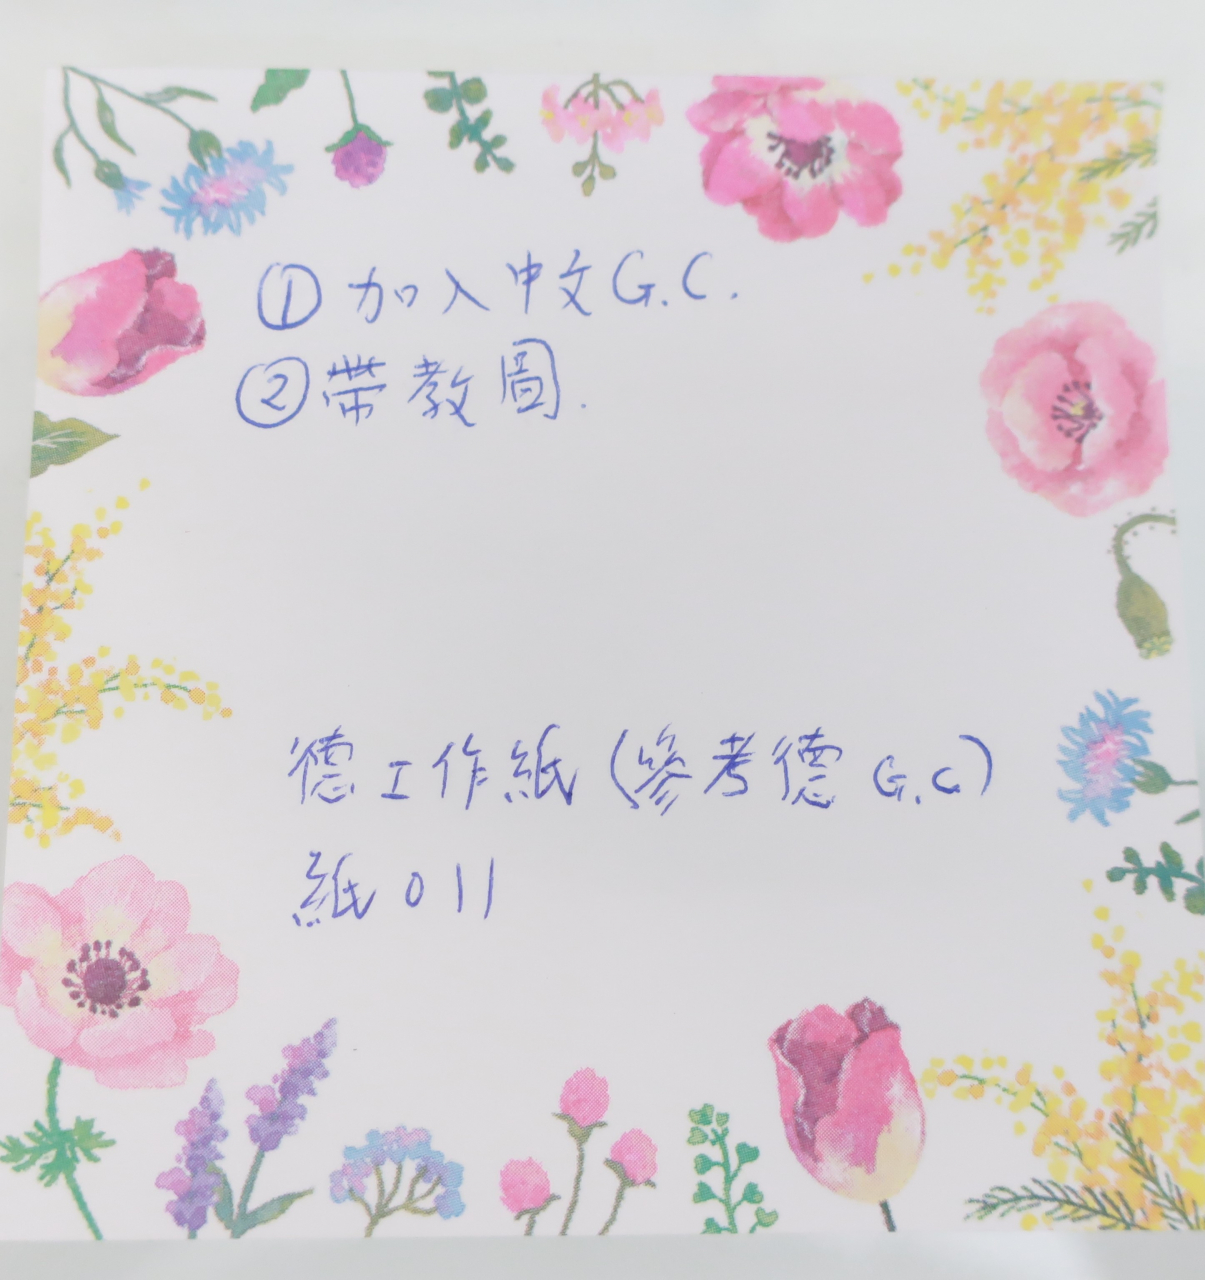 ① 加入中文G.C.
② 帶教圖.
德工作紙(參考德 G.C)
紙011